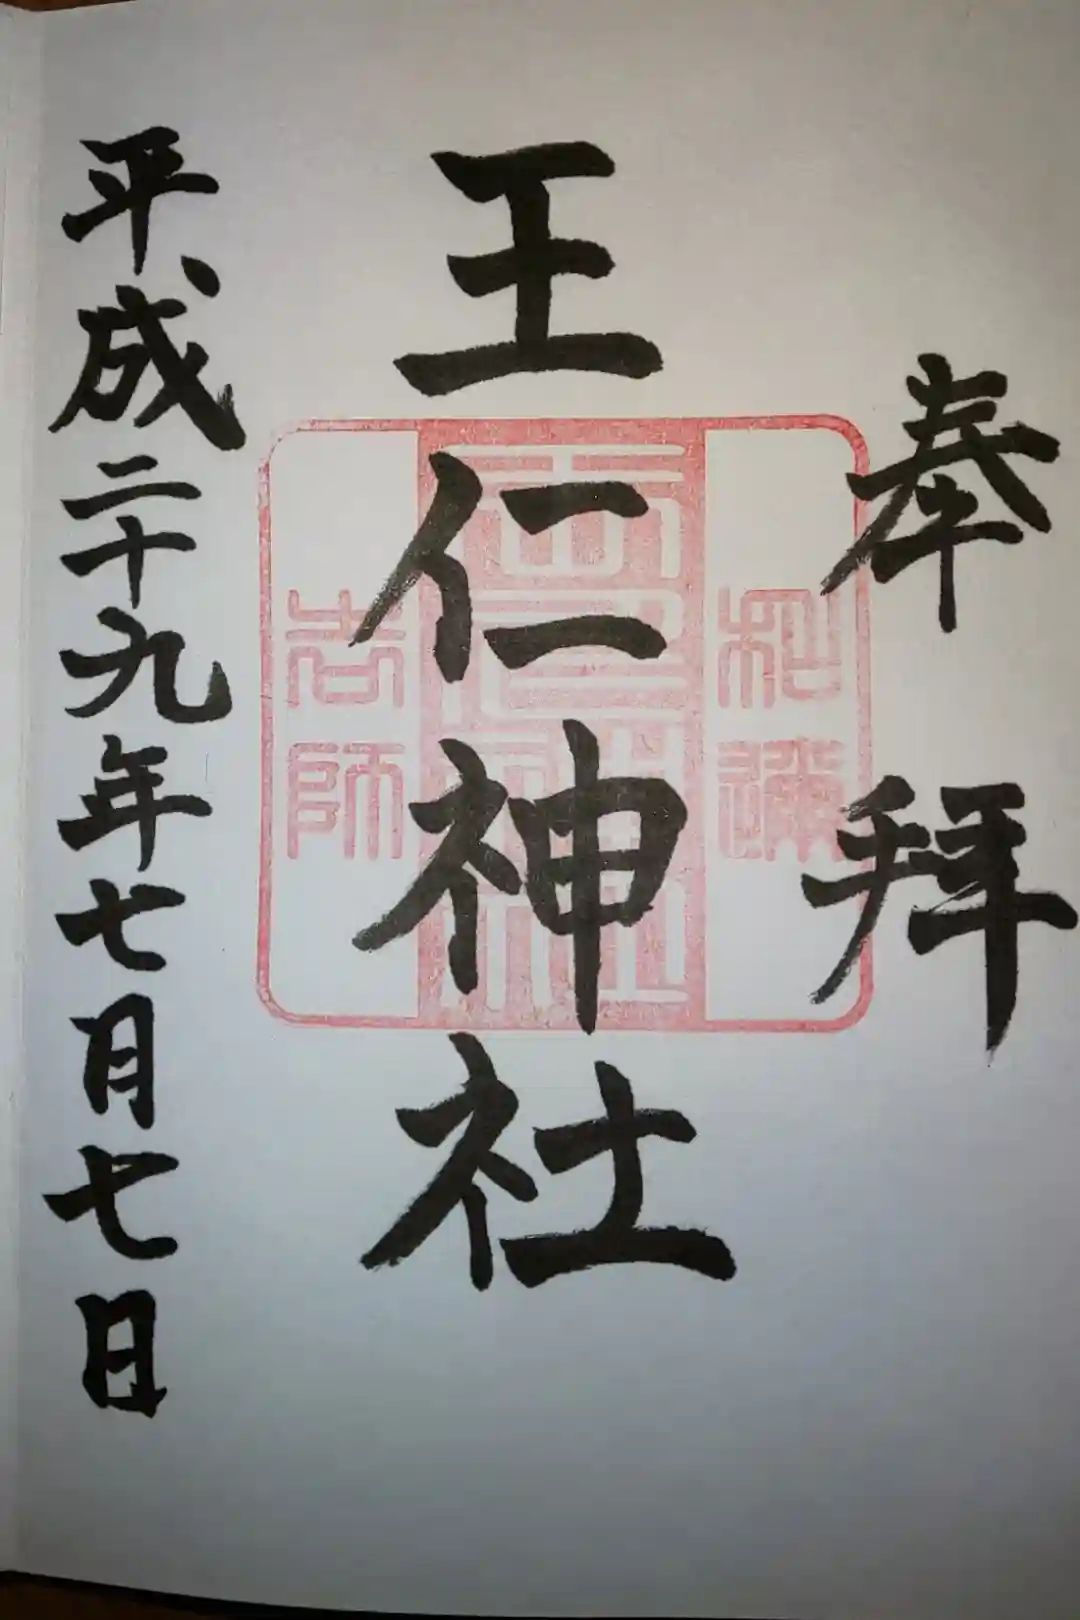 奉拝
王仁神社
平成二十九年七月七日